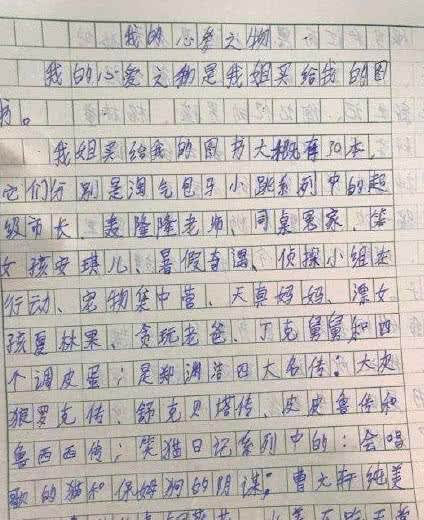 我的心爱之物
我的心爱之物是我姐买给我的图
书。
我姐买给我的图书大概有30本,
它们分别是淘气包马小跳系列中的超
级市长、轰隆隆老师、同桌冤家、笨
女孩安琪儿、暑假奇遇、侦探小组在
行动、宠物集中营、天真妈妈、漂女
孩夏林果、贪玩老爸、丁克舅舅和四
个调皮蛋;是郑渊洁四大名传:大灰
狼罗克传、舒克贝塔传、皮皮鲁传和
鲁西西传;笑猫日记系列中的:会唱
歌的猫和保姆狗的阴谋;曹文轩纯美